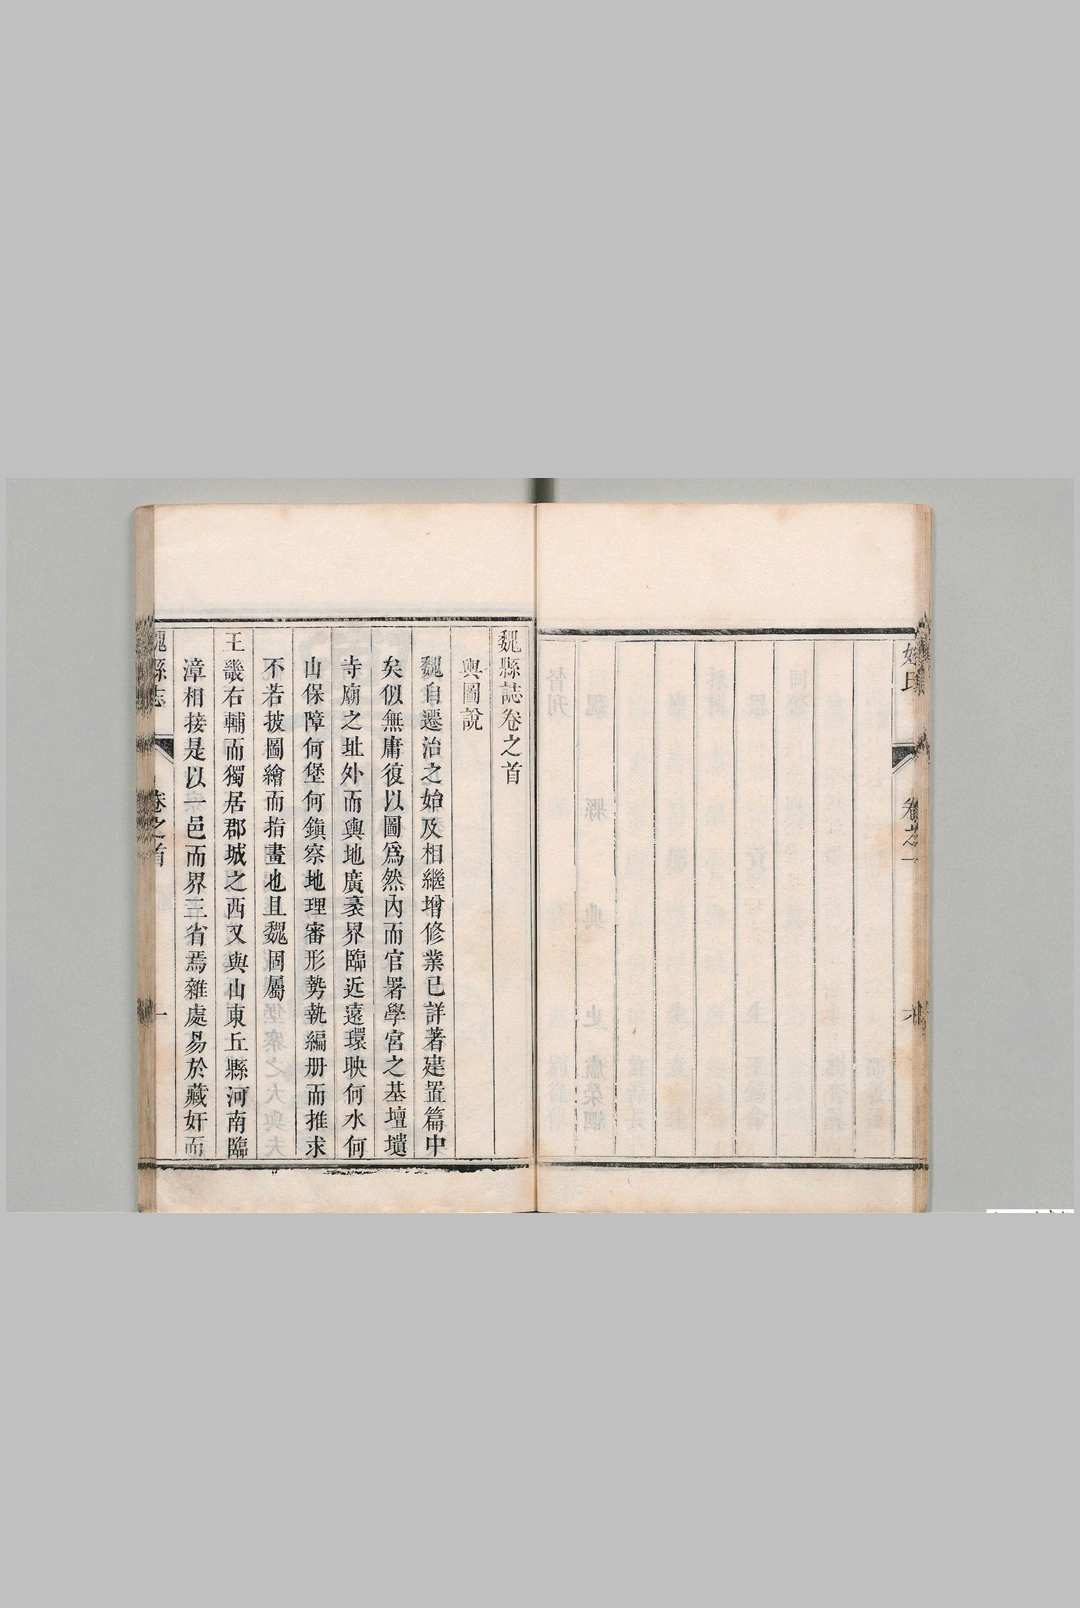 姓氏
卷之一
魏縣誌卷之首
輿圖說
魏自遷治之始及相繼增修業已詳著建置篇中
矣似無庸復以圖爲然內而官署學宮之基壇壝
寺廟之址外而輿地廣袤界臨近遠環映何水何
山保障何堡何鎮察地理審形勢執編册而推求
不若披圖繪而指畫也且魏固屬
王畿右輔而獨居郡城之西又與山東丘縣河南臨
漳相接是以一邑而界三省焉雜處易於藏奸而
魏縣志
卷之首
一